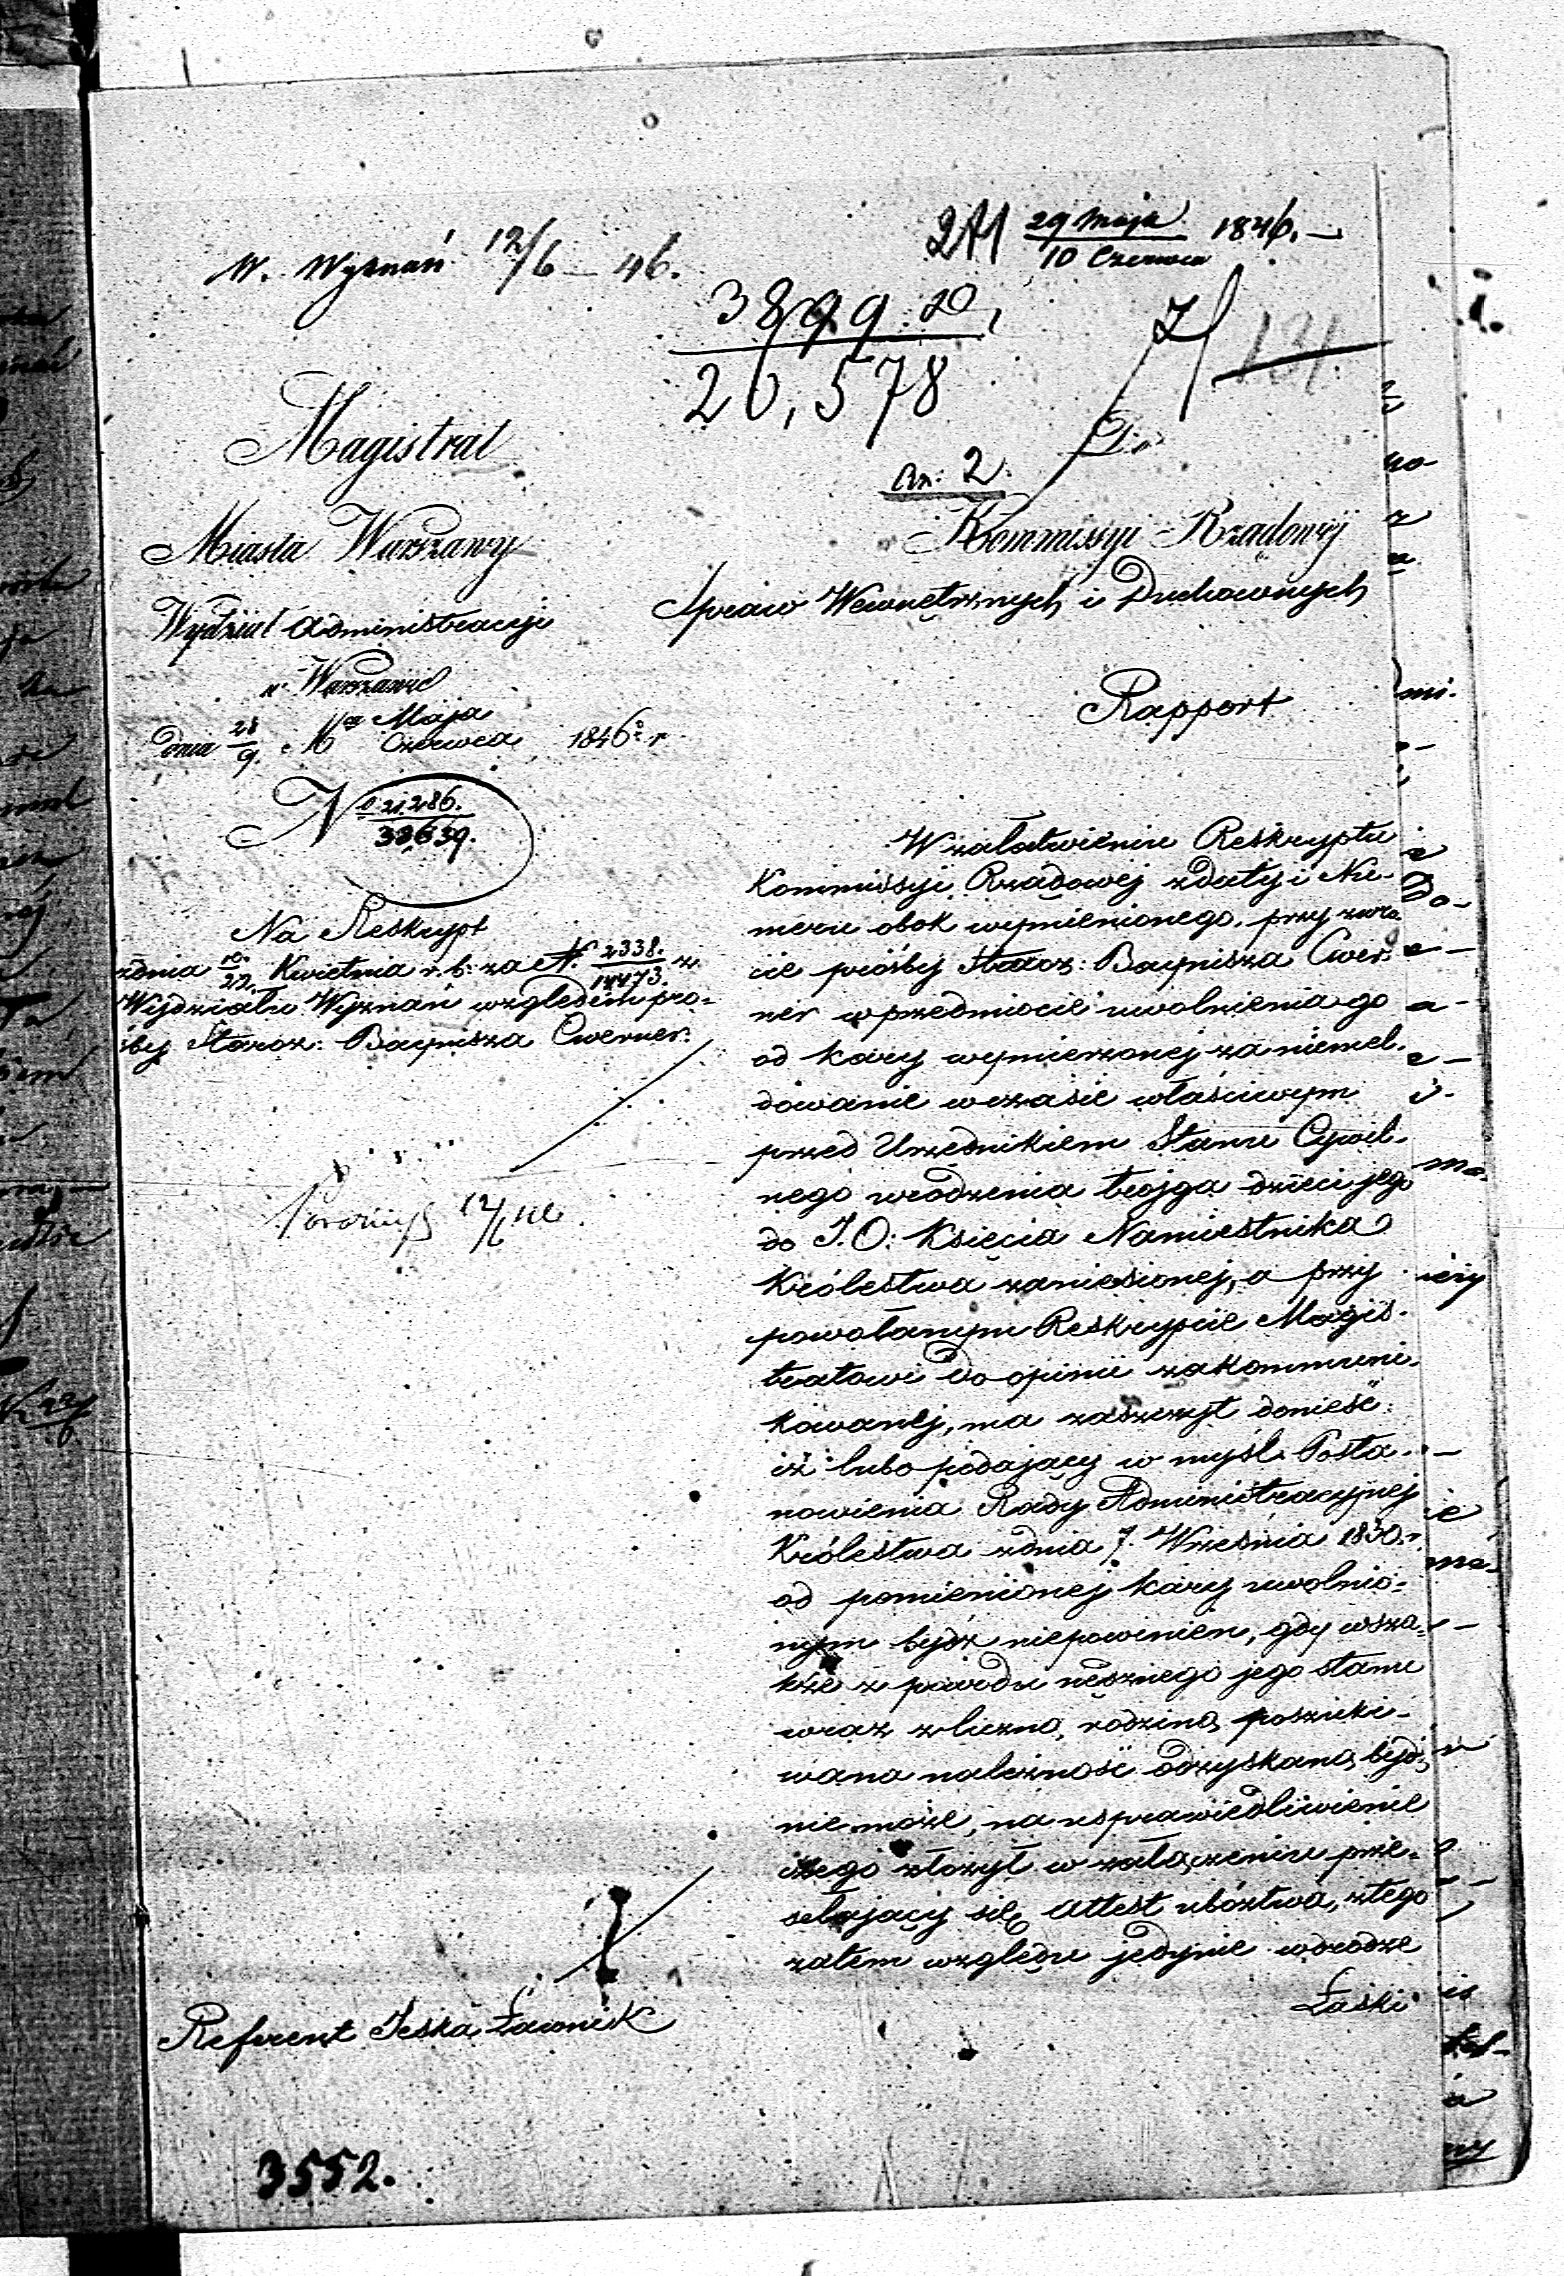 W. Wyznań 12/6 – 46.
29 Maja
10 Czerwca 1846. –
3899.20
20,578
131.
Magistrat
Miasta Warszawy
Wydział Administracyi
w Warszawie
dnia 28/9. Mca Maja Czerwca 1846 r
No 21.286.
33,639.
Na Reskrypt
z dnia 10./22. Kwietnia r. b. za N. 2338./14473. z
Wydziału Wyznań względem pro-
śby Staroz: Baynisza Cwerner.
Referent Jeska Ławnik
3552.
Do
An: 2.
Kommissyi Rządowéj
Spraw Wewnętrznych i Duchownych
Rapport
W załatwieniu Reskryptu
Kommissyi Rządowéj z daty i Nu-
meru obok wymienionego, przy zwro
cie prośby Staroz: Baynisza Cwer-
ner w przedmiocie uwolnienia go
od kary wymierzonej za niemel-
dowanie w czasie właściwym
przed Urzędnikiem Stanu Cywil-
nego urodzenia trojga dzieci jego
do J. O. Księcia Namiestnika
Królestwa zaniesionej, a przy
powołanym Reskrypcie Magis-
tratowi do opinii zakommuni-
kowanej, ma zaszczyt donieść:
iż lubo podający w myśl Posta-
nowienia Rady Administracyjnej
Królestwa z dnia 7. Września 1830. r.
od pomienionej kary uwolnio-
nym bydź niepowinien, gdy wsza-
kże z powodu nędznego jego stanu
wraz z liczną rodziną poszuki-
wana należność odzyskaną bydź
nie może, na usprawiedliwienie
czego złożył w załączeniu prze-
sełający się Attest ubóztwa, z tego
zatem względu jedynie w drodze
Łaski